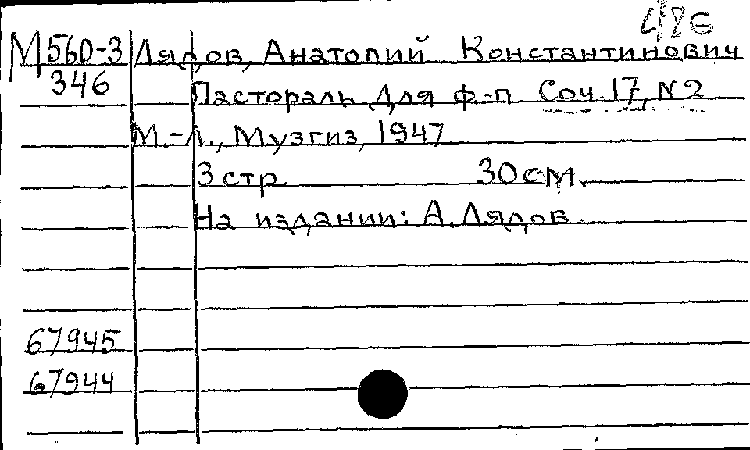 М560-3 Лядов, Анатолий Константинович
346 Пастораль для ф-п Соч. 17, N2
М.-Л., Музгиз, 1947
3 стр. 30 см.
На издании: А. Лядов.
67945
67944